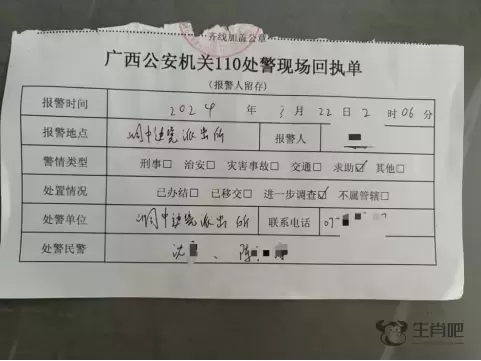 齐线加盖公章
广西公安机关110处警现场回执单
(报警人留存)
报警时间 2024 年 3 月 22 日 2 时 06 分
报警地点 派出所 报警人
警情类型 刑事□ 治安□ 灾害事故□ 交通□ 求助☑ 其他□
处置情况 已办结□ 已移交□ 进一步调查☑ 不属管辖□
处警单位 派出所 联系电话 07
处警民警 沈 、陈
生肖吧